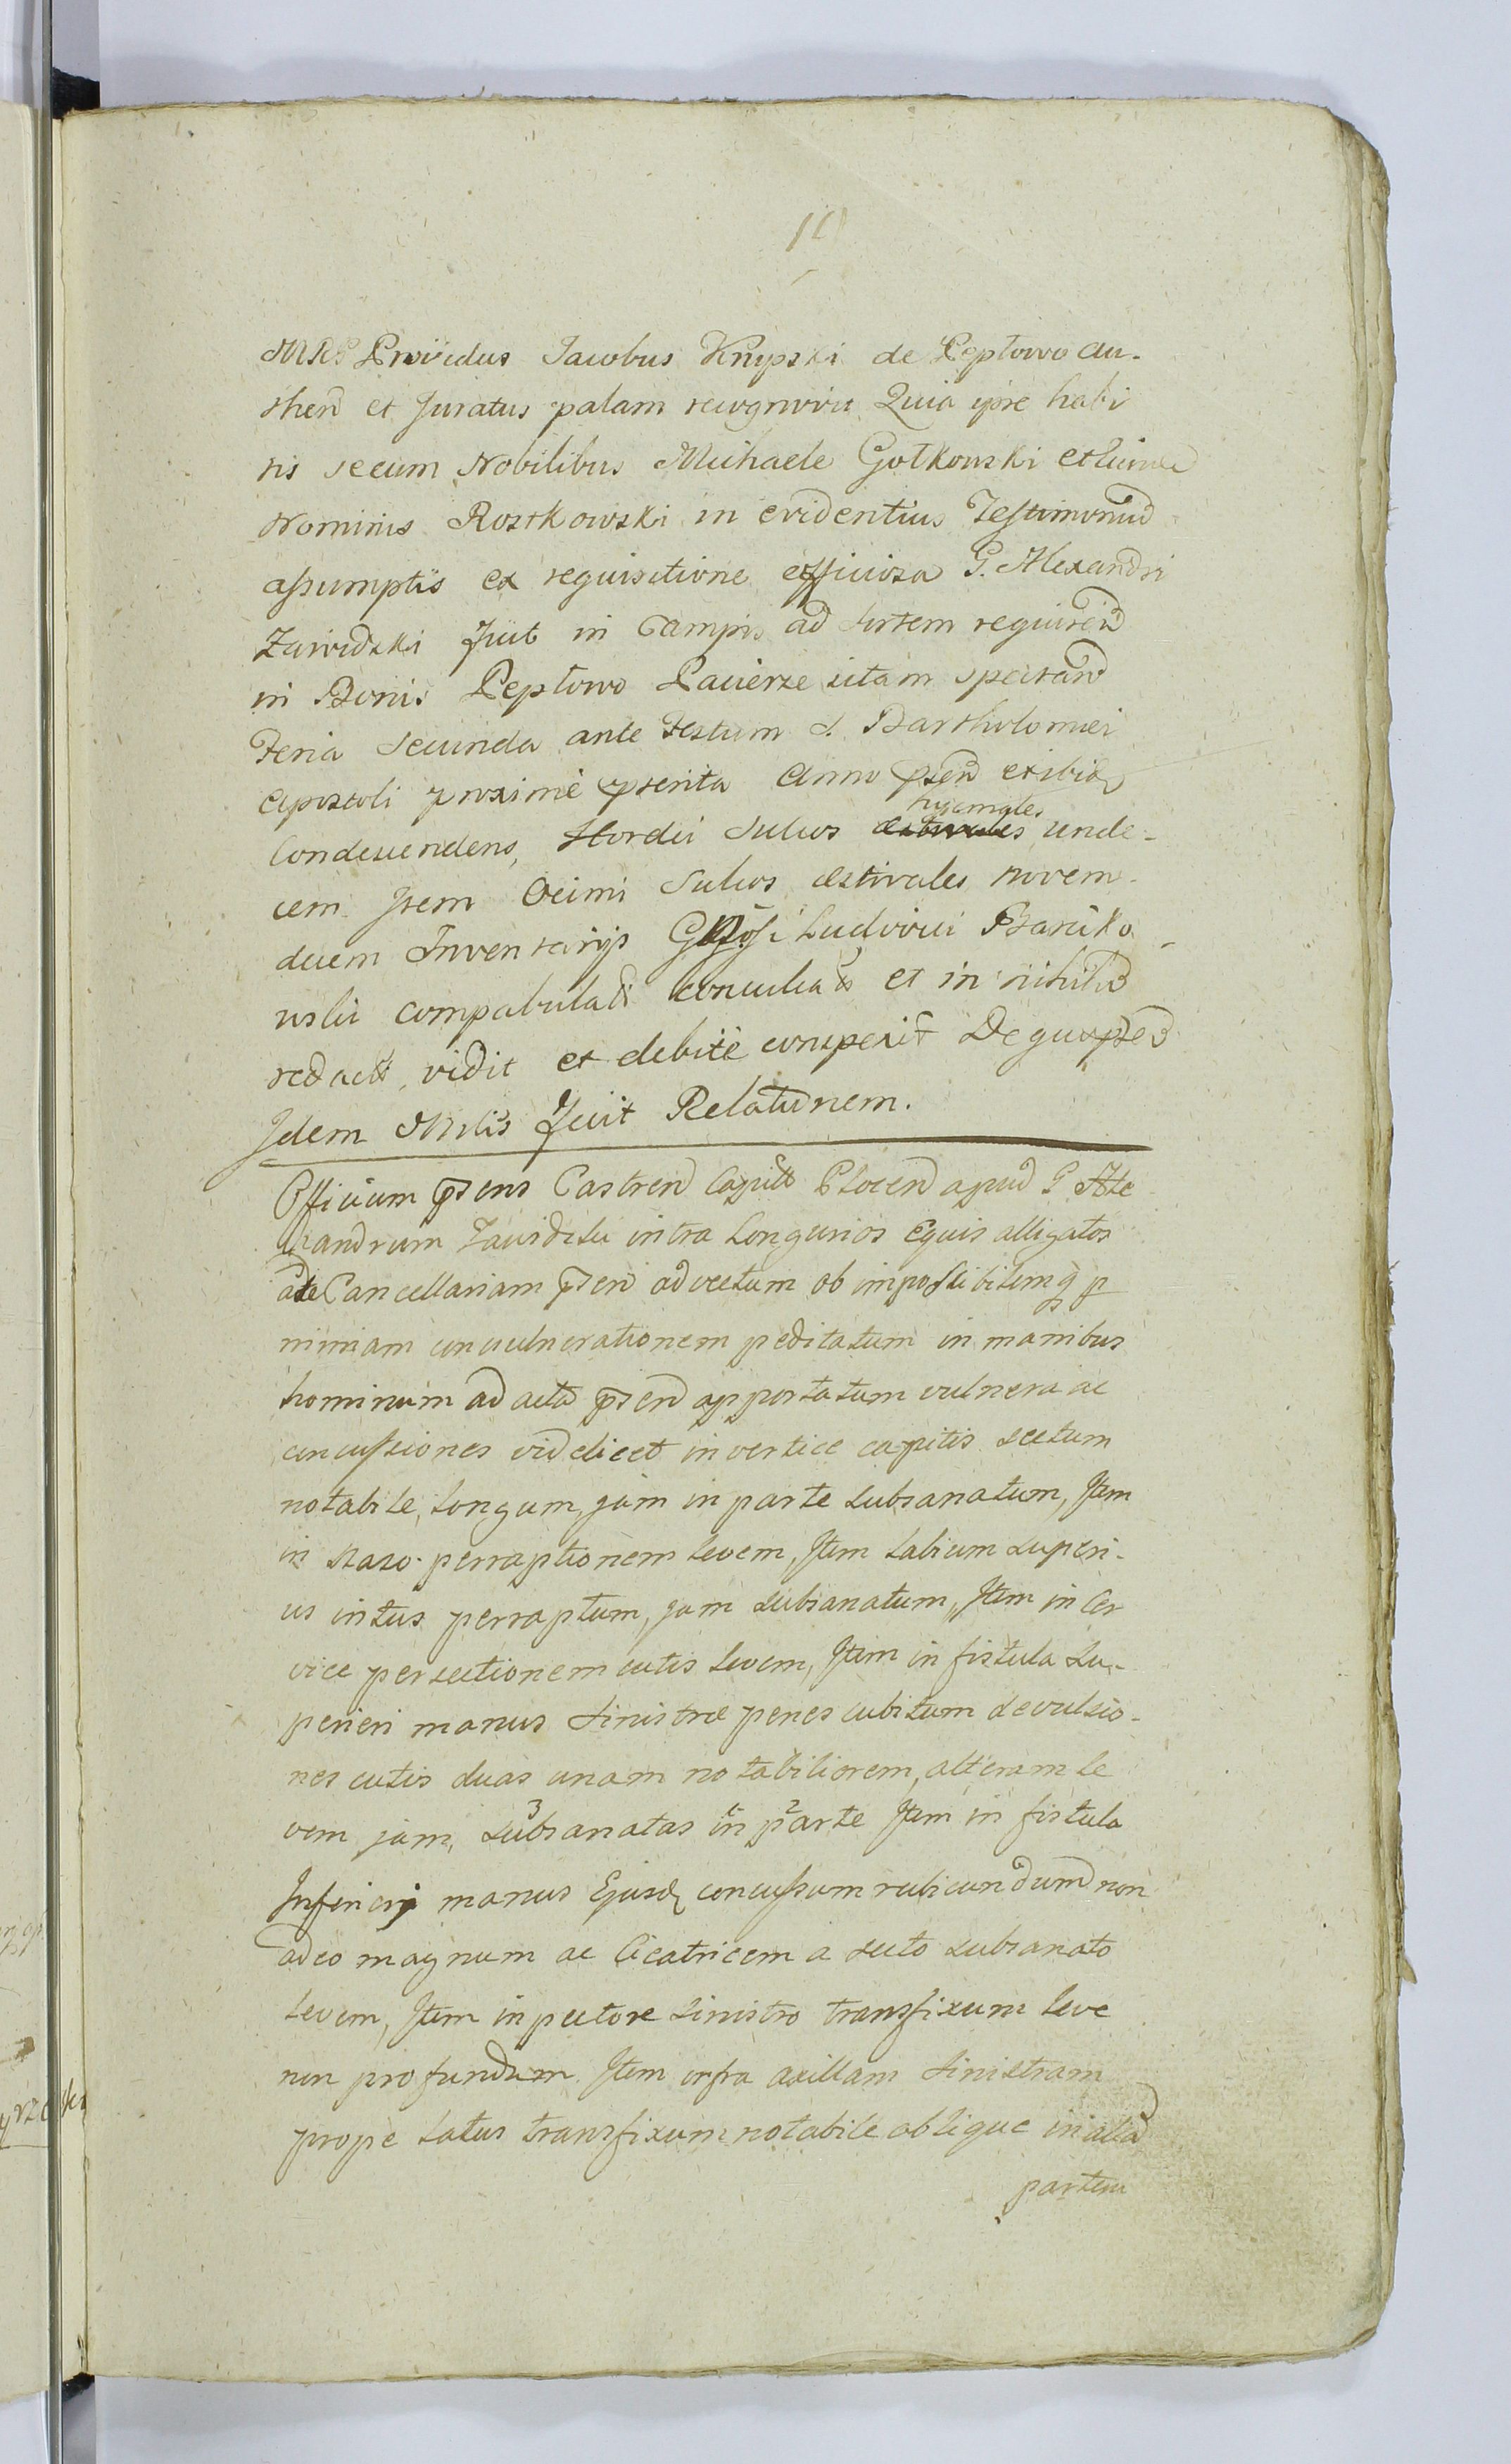 10
MRP Providus Jacobus Knypski de Peptowo au-
then et Juratus palam recognovit Quia ipse habi
tis secum Nobilibus Michaele Gotkowski et
Nominis Rostkowski in evidentius Testimoniu
assumptis ex requisitione officiosa G. Alexandri
Zawidzki fuit in Campis ad Sortem requiren
in Bonis Peptowo Pacierze sitam spectan
Feria Secunda ante Festum S. Bartholomei
Apostoli proxime pterita Anno psen et ibid
Condescendens, Hordei Sulcos hyemales unde-
cem Item Ocimi Sulcos æstivales novem-
decem Inventarijs Gnosi Ludovici Barciko
wski compabulat conculcat et in nihilu
redact, vidit et debite conspexit De quo psed
Idem Mnlis fecit Relationem.
Officium psens Castren Capit Plocen apud G Ale
xandrum Zawidzki intra Longurios Equis alligatos
ate Cancellariam psen advectum ob impossibilemq p
nimiam convulnerationem peditatum in manibus
hominum ad acta psen apportatum vulnera ac
concussiones videlicet in vertice capitis sectum
notabile, longum, jam in parte subsanatum, Item
in Naso perraptionem levem, Item labium superi-
us intus perraptum, jam subsanatum, Item in Cer
vice persectionem cutis levem, Item in fistula su-
periori manus sinistræ penes cubitum devulsio-
nes cutis duas unam notabiliorem, alteram le
vem jam, subsanatas in parte Item in fistula
Inferiori manus Ejusd concussum rubicundum non
adeo magnum ac Cicatricem a secto subsanato
levem, Item in pectore sinistro transfixum leve
non profundum Item infra axillam sinistram
prope latus transfixum notabile oblique in alia
partem